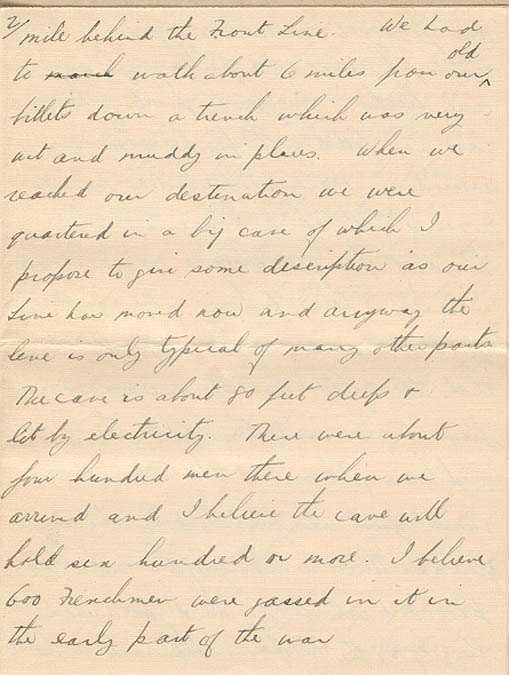 2/
mile behind the Front Line. We had
to march walk about 6 miles from our old
billets down a trench which was very
wet and muddy in places. When we
reached our destination we were
quartered in a big cave of which I
propose to give some description as our
Line has moved now and anyway the
line is only typical of many other parts
The cave is about 80 feet deep &
lit by electricity. There were about
four hundred men there when we
arrived and I believe the cave will
hold six hundred or more. I believe
600 Frenchmen were gassed in it in
the early part of the war